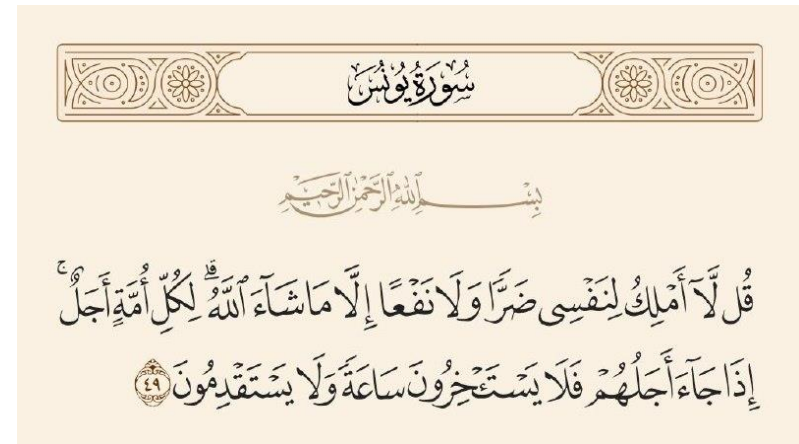 سُورَةُ يُونُسَ
بِسْمِ ٱللَّهِ ٱلرَّحْمَٰنِ ٱلرَّحِيمِ
قُل لَّآ أَمْلِكُ لِنَفْسِى ضَرًّا وَلَا نَفْعًا إِلَّا مَا شَآءَ ٱللَّهُ ۗ لِكُلِّ أُمَّةٍ أَجَلٌ ۚ
إِذَا جَآءَ أَجَلُهُمْ فَلَا يَسْتَـْٔخِرُونَ سَاعَةً وَلَا يَسْتَقْدِمُونَ ٤٩